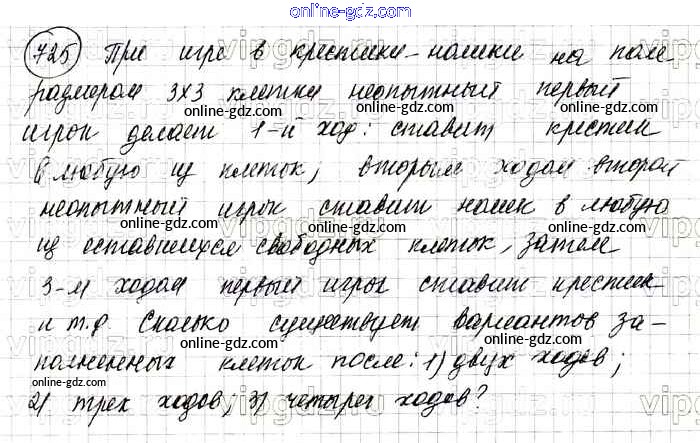 online-gdz.com
725 При игре в крестики-нолики на поле
размером 3х3 клетки неопытный первый
игрок делает 1-й ход: ставит крестик
в любую из клеток; вторым ходом второй
неопытный игрок ставит нолик в любую
из оставшихся свободных клеток, затем
3-м ходом первый игрок ставит крестик
и т.д. Сколько существует вариантов за-
полненных клеток после: 1) двух ходов;
2) трех ходов; 3) четырех ходов?
online-gdz.com